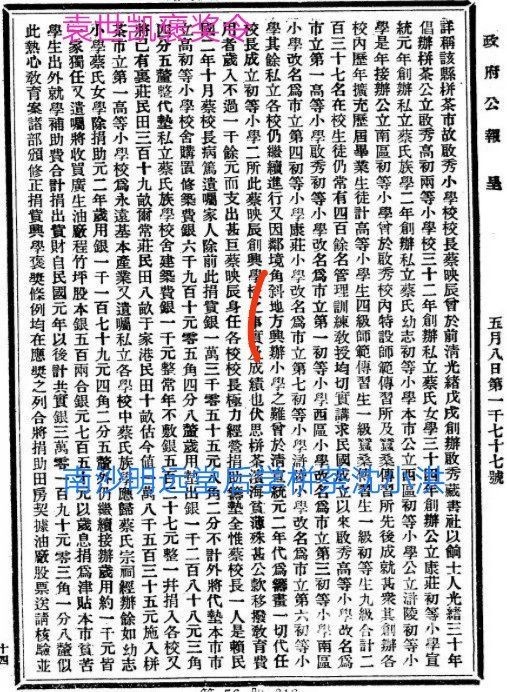 袁世凯褒奖令
政府公報
呈
五月八日第一千七十七號
詳稱該縣栟茶市故啟秀小學校校長蔡映辰曾於前清光緒戊戌創辦啟秀藏書社以餉士人光緒三十年
倡辦栟茶公立啟秀高初兩等小學校三十二年創辦私立蔡氏女學三十四年創辦公立康莊初等小學宣
統元年創辦私立蔡氏族學二年創辦私立蔡氏幼志初等小學本市公立西區初等小學公立滸陵初等小
學是年接辦公立南區初等小學曾於啟秀校內特設師範傳習所及蠶桑傳習所先後成就甚衆其創辦各
校內歷年擴充歷屆畢業生徒計高等小學生四級師範傳習生一級蠶桑傳習生一級初等生九級合計二
百三十七名在校生徒仍常有四百餘名管理訓練教授均切實講求民國成立以來啟秀高等小學改名爲
市立第一高等小學啟秀初等小學改名爲市立第一初等小學西區小學改名爲市立第三初等小學南區
小學改名爲市立第四初等小學康莊小學改名爲市立第七初等小學滸陵小學改名爲市立第六初等小
學其餘私立各校仍繼續進行又因鄰境角斜地方興辦小學之難曾於清宣統元年二年代爲籌畫一切代任
校長成立初等小學二所此蔡映辰創興學校之事實及成績也伏思栟茶濱海貧薄殊甚公款移撥教育費
用者歲入不過一千餘元而支出甚巨蔡映辰身任各校校長極力經營捐助籌墊全惟蔡校長一人是賴民
國二年十月蔡校長病篤遺囑家人除前此捐貲銀一萬三千零五十五元八角二分不計外將代墊本市市
立高初等小學校校舍購置修築費銀六千九百十元零五角四分八釐歲用墊出銀一千二百八十八元三角
四分五釐整代墊私立蔡氏族學校舍建築費銀一千元整常年不敷銀五百十七元整一幷捐入各校又
將已有裏莊民田三百十九畝爾常莊民田八畝于家港民田十畝估今值銀一萬八千五百三十五元施入栟
茶市立第一高等小學校爲永遠基本產業又遺囑私立各學校中蔡氏族學應歸蔡氏宗祠經辦餘如幼志
小學蔡氏女學除捐助元二年歲用銀一千一百七十九元四角二分五釐外仍繼續接辦歲用約一千元皆
由家獨任又遺囑將收買廣生油廠程竹坪股本銀五百兩合銀元七百五十元以歲息捐爲津貼本市貧苦
學生出外就學補助費合計捐出貲財自民國元年以後計共實銀三萬零一百九十元零三角一分八釐似
此熱心教育案諸部頒修正捐貲興學褒獎條例均在應獎之列合將捐助田房契據油廠股票送請核驗並
南沙明远堂居学栟茶沈小洪
十四